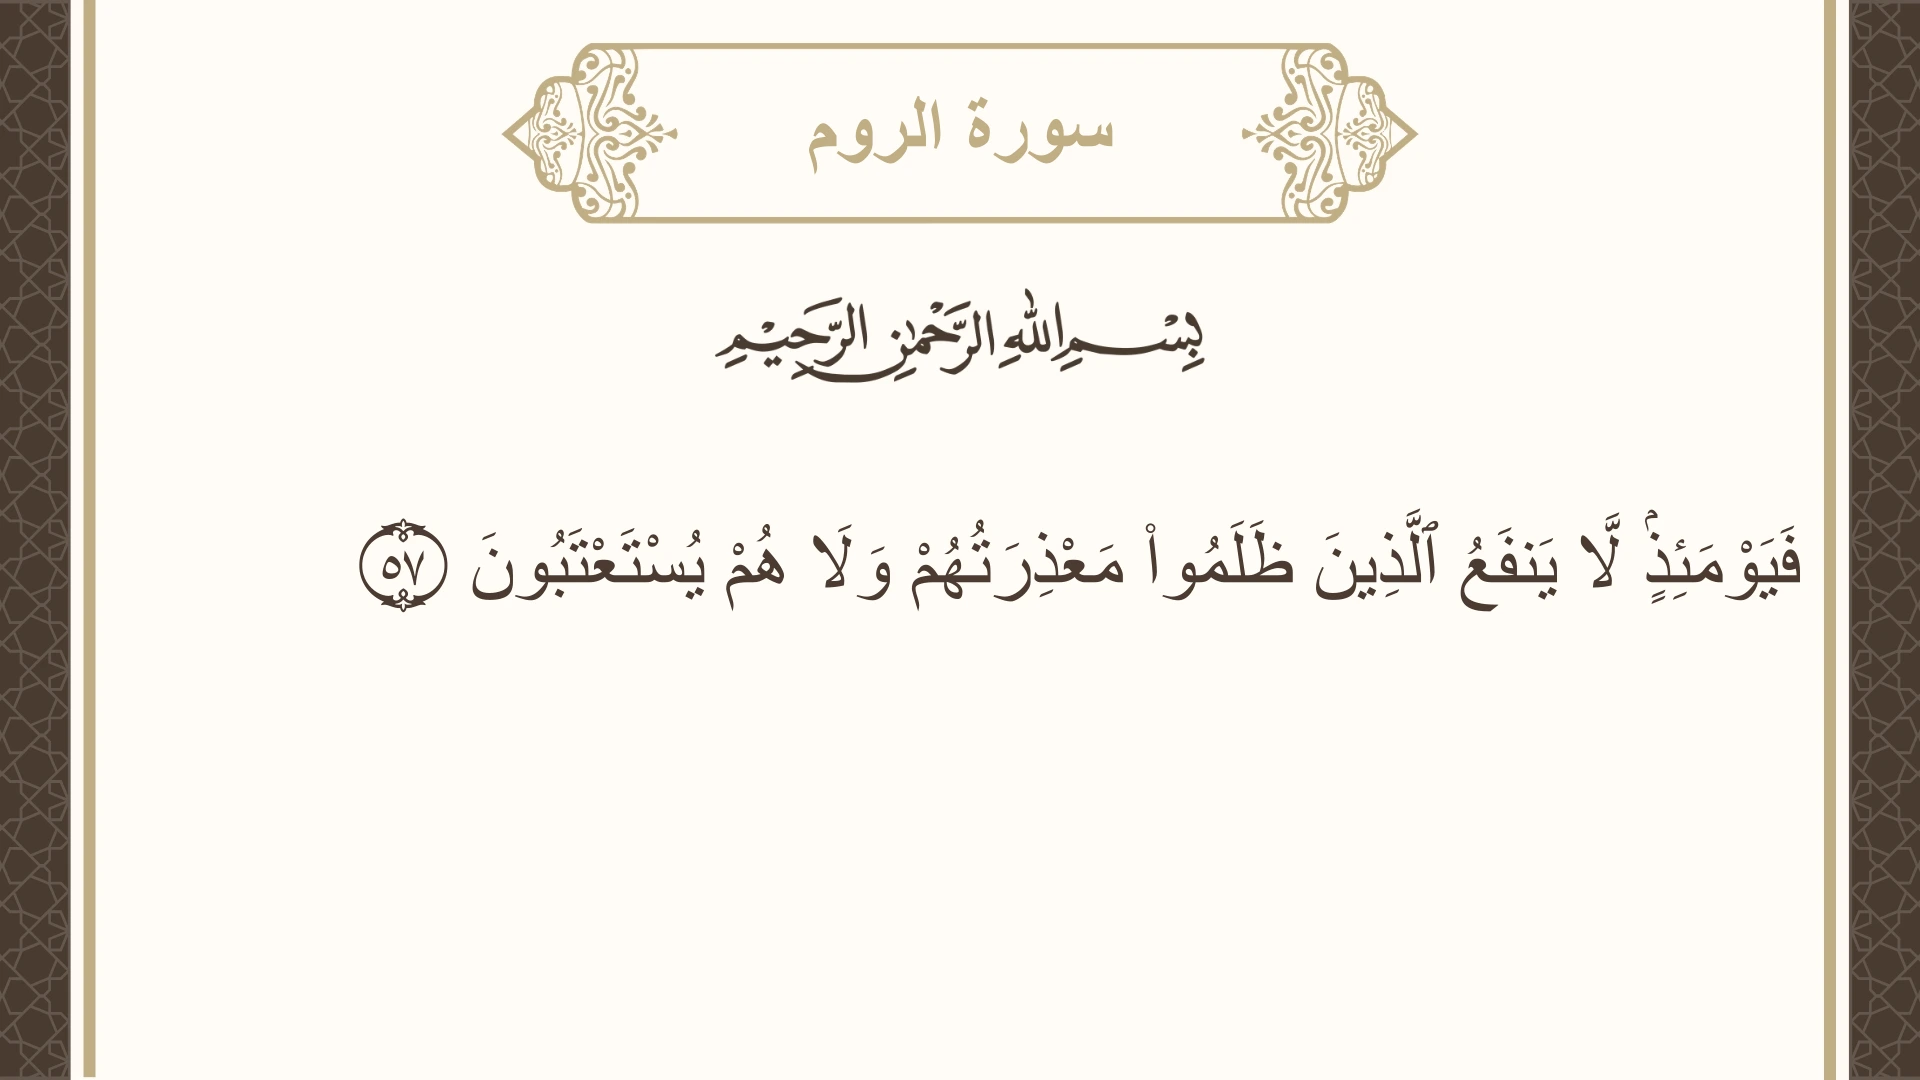 سورة الروم
بِسْمِ اللهِ الرَّحْمٰنِ الرَّحِيْمِ
فَيَوْمَئِذٖ لَّا يَنفَعُ ٱلَّذِينَ ظَلَمُوا۟ مَعْذِرَتُهُمْ وَلَا هُمْ يُسْتَعْتَبُونَ ٥٧